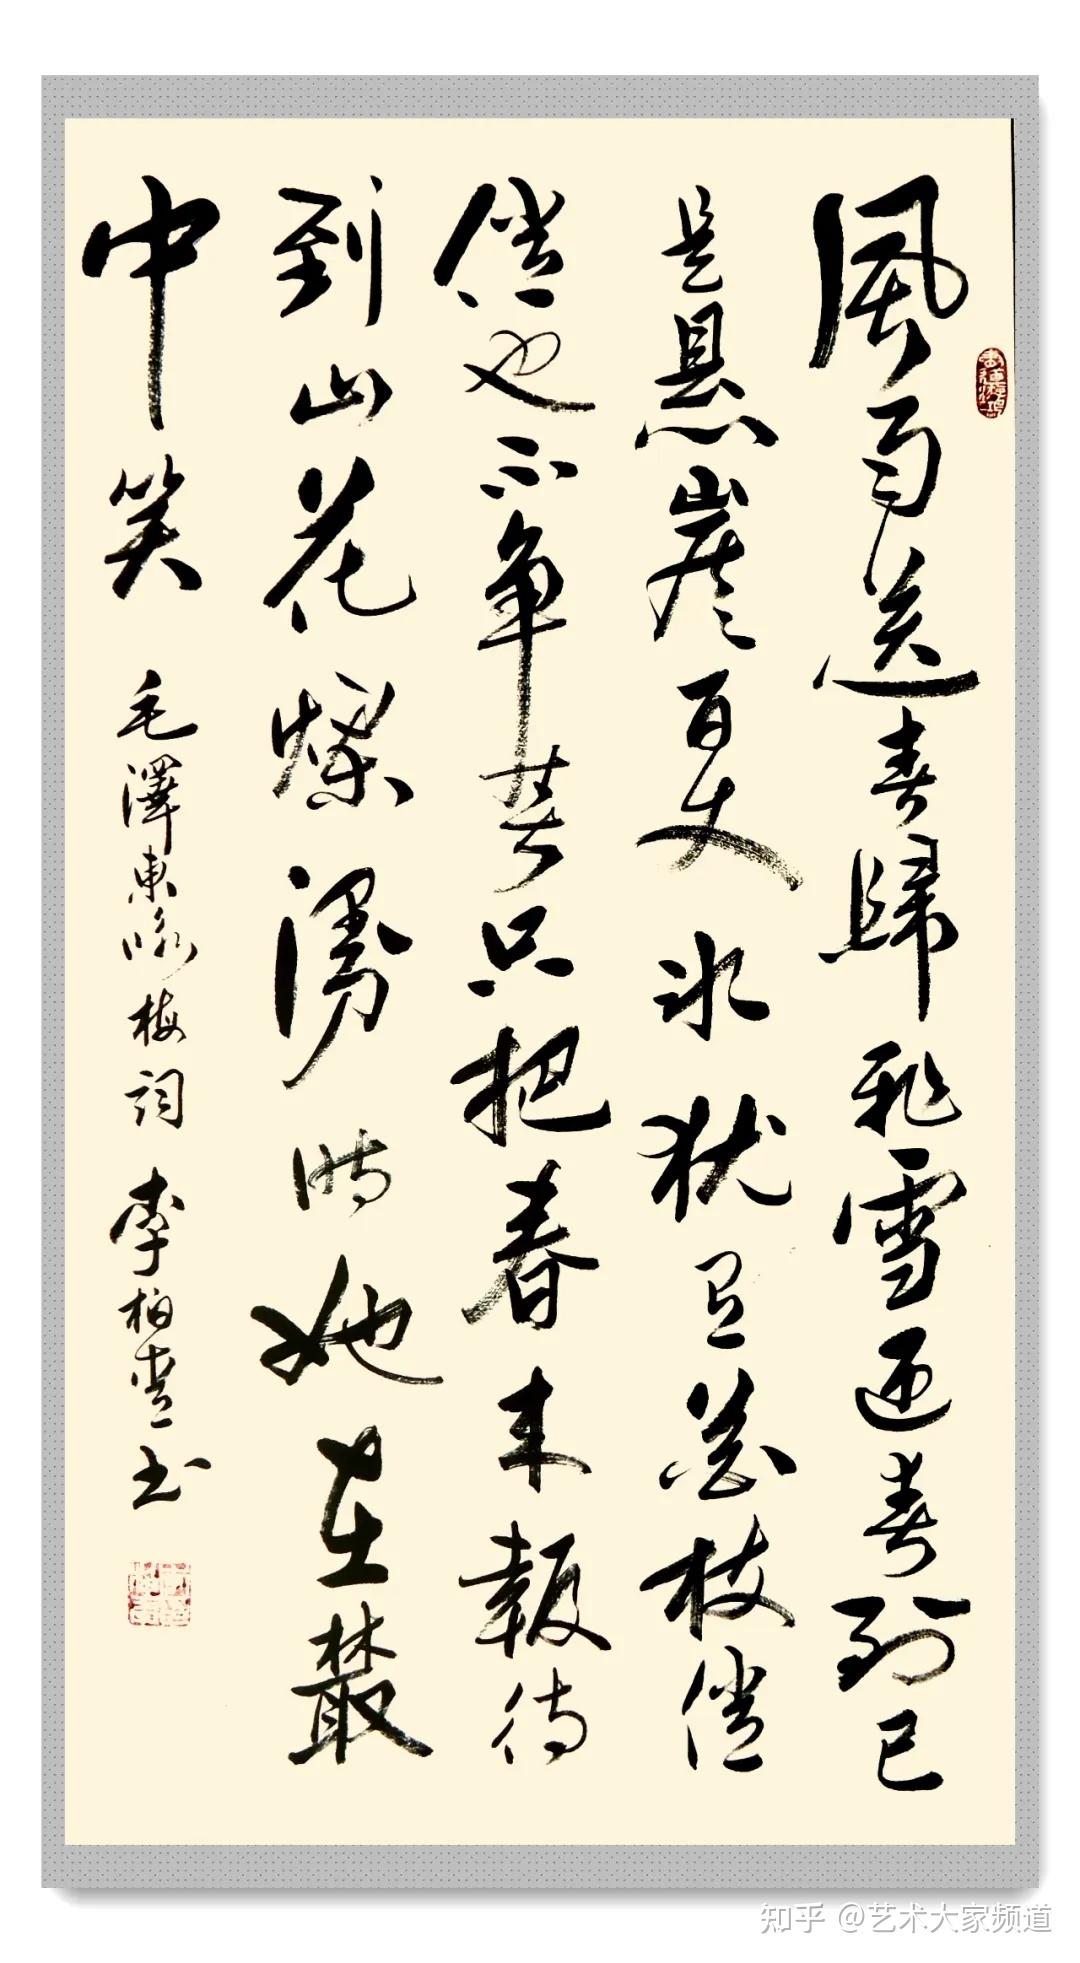 風雨送春歸飛雪迎春到已
是悬崖百丈冰犹有花枝俏
俏也不争春只把春来報待
到山花燦漫时她在叢
中笑 毛澤東咏梅詞 李柏书
知乎 @艺术大家频道